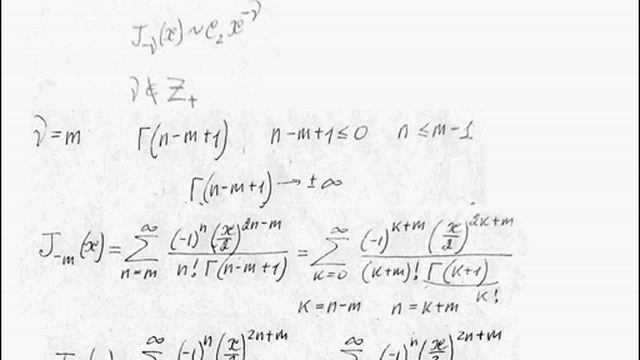 J_{-ν}(x) ~ C_2 x^{-ν}
ν ∉ Z_+
ν = m    Γ(n-m+1)    n-m+1 ≤ 0    n ≤ m-1
Γ(n-m+1) → ± ∞
J_{-m}(x) = \sum_{n=m}^{∞} \frac{(-1)^n (\frac{x}{2})^{2n-m}}{n! Γ(n-m+1)} = \sum_{k=0}^{∞} \frac{(-1)^{k+m} (\frac{x}{2})^{2k+m}}{(k+m)! Γ(k+1)}
k!
k = n-m    n = k+m
\sum^{∞} (-1)^n (\frac{x}{2})^{2n+m}    \sum^{∞} (-1)^n (\frac{x}{2})^{2n+m}